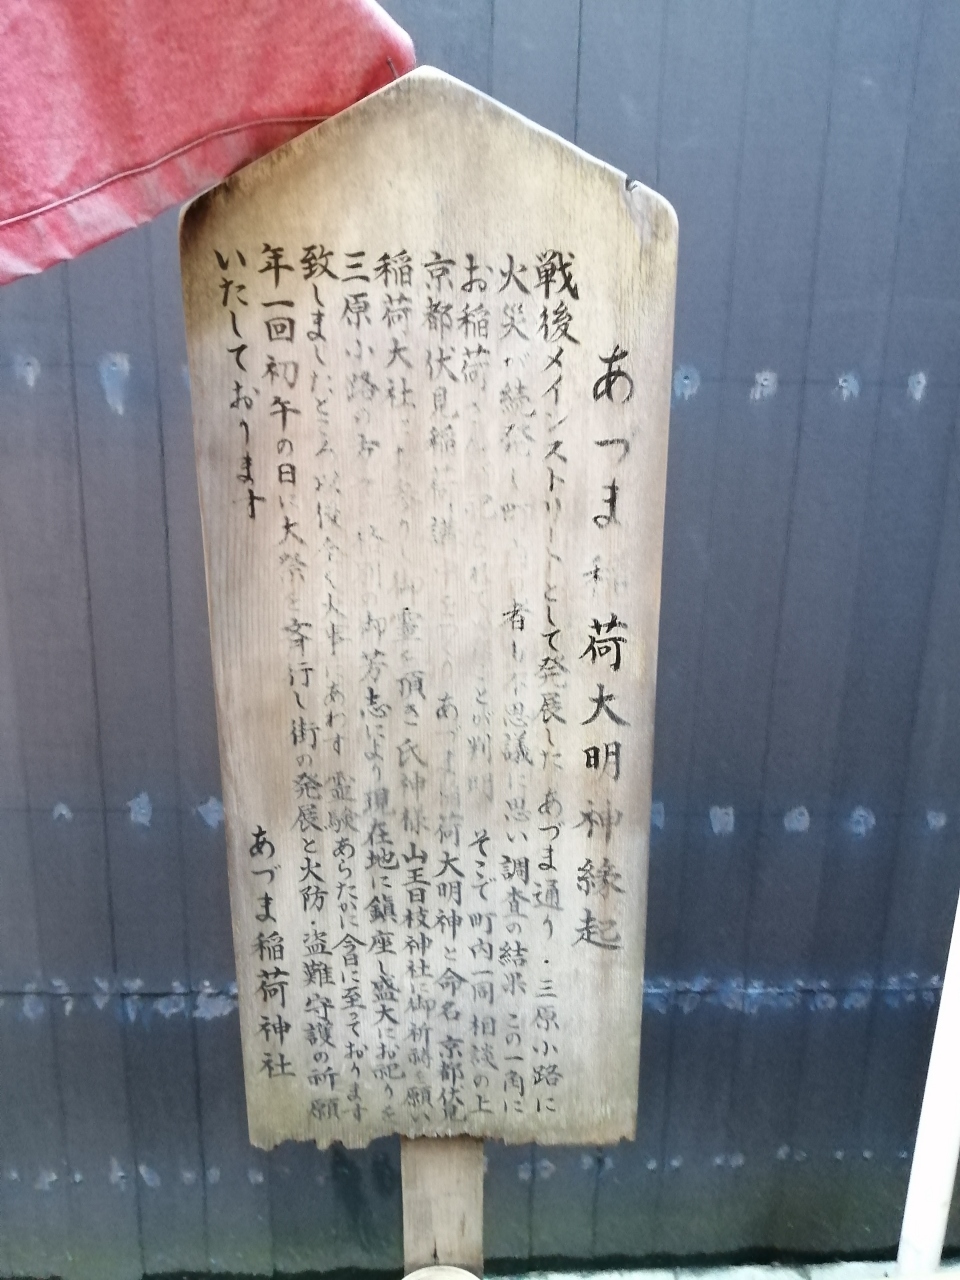 あづま稲荷大明神縁起
戦後メインストリートとして発展した あづま通り・三原小路に
火災が続発し町 者も不思議に思い調査の結果 この一角に
お稲荷さん 祀られて ことが判明 そこで町内一同相談の上
京都伏見稲荷 講 あづま稲荷大明神と命名 京都伏見
稲荷大社 お参りし御霊を頂き 氏神様山王日枝神社に御祈祷を願い
三原小路の 特別の御芳志により現在地に鎮座し盛大にお祀りを
致しましたところ 以後全く火事にあわず 霊験あらたかに今日に至っております
年一回初午の日に大祭を斎行し街の発展と火防・盗難守護の祈願
いたしております
あづま稲荷神社